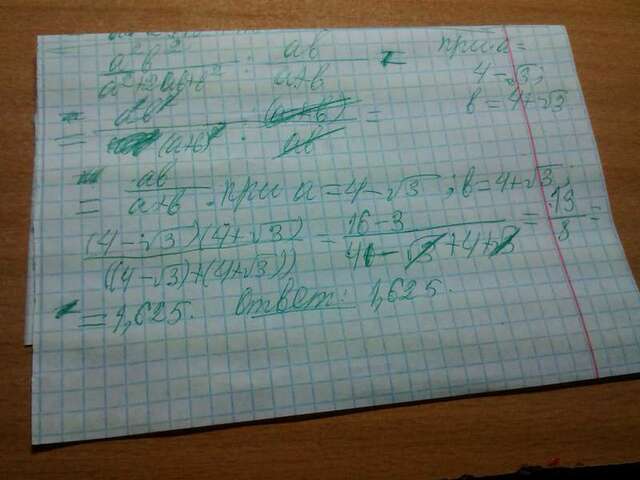 a²b² / a²+2ab+b² : ab / a+b = при a= 4-√3; b=4+√3
= ab / (a+b) : (a+b) / ab =
= ab / a+b при a=4-√3; b=4+√3;
(4-√3)(4+√3) / ((4-√3)+(4+√3)) = 16-3 / 4-√3+4+√3 = 13 / 8 =
= 1,625. Ответ: 1,625.